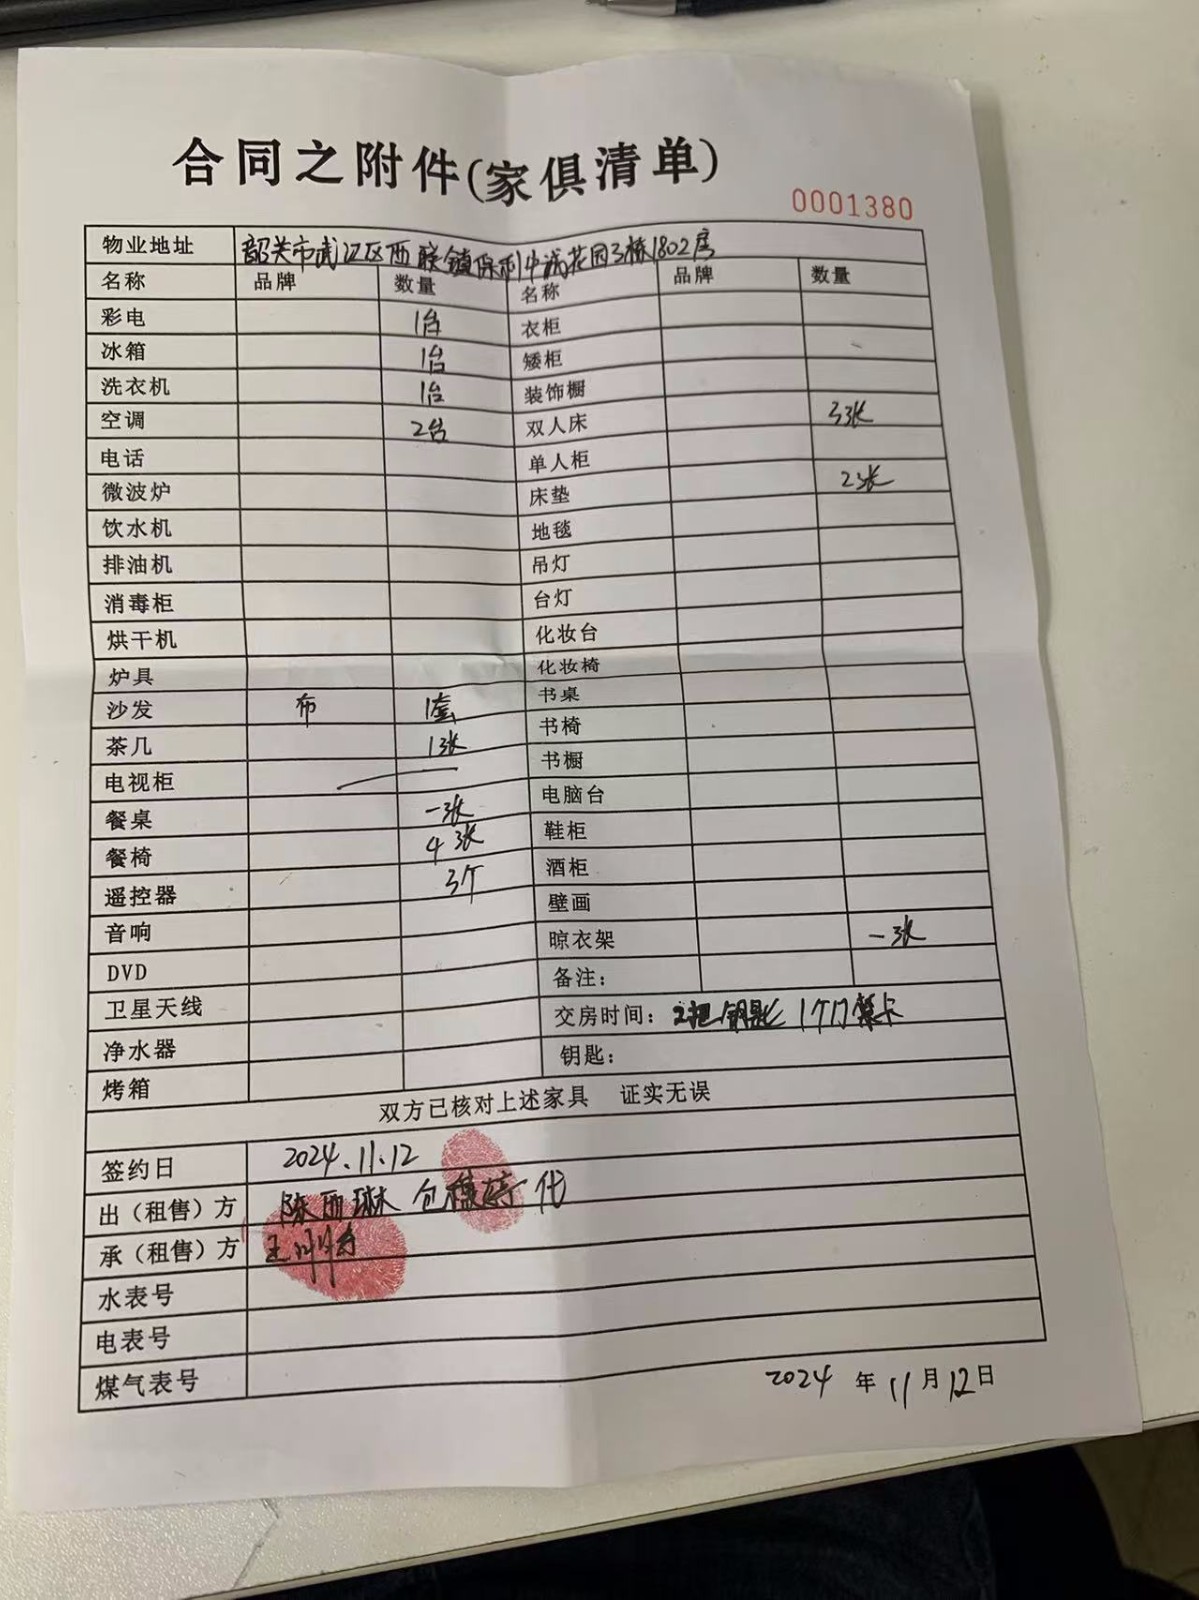 合同之附件(家俱清单)
0001380
物业地址 韶关市武江区西联镇保利中诚花园3栋1802房
名称 品牌 数量 名称 品牌 数量
彩电 1台 衣柜
冰箱 1台 矮柜
洗衣机 1台 装饰橱
空调 2台 双人床 3张
电话 单人柜
微波炉 床垫 2张
饮水机 地毯
排油机 吊灯
消毒柜 台灯
烘干机 化妆台
炉具 化妆椅
沙发 布 1套 书桌
茶几 1张 书椅
电视柜 书橱
餐桌 一张 电脑台
餐椅 4张 鞋柜
遥控器 3个 酒柜
音响 壁画
DVD 晾衣架 一张
卫星天线 备注：
净水器 交房时间：2把钥匙 1个门禁卡
烤箱 钥匙：
双方已核对上述家具 证实无误
签约日 2024.11.12
出（租售）方 陈丽琳 代
承（租售）方 王
水表号
电表号
煤气表号
2024 年 11 月 12 日